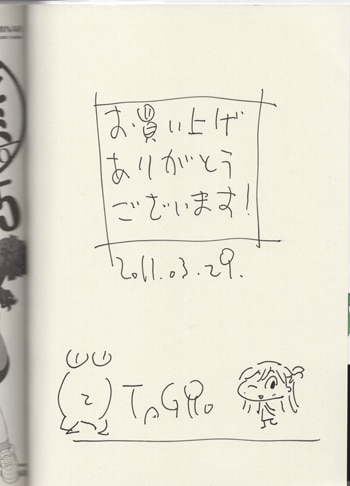 お買い上げ
ありがとう
ございます!
2011.03.29.